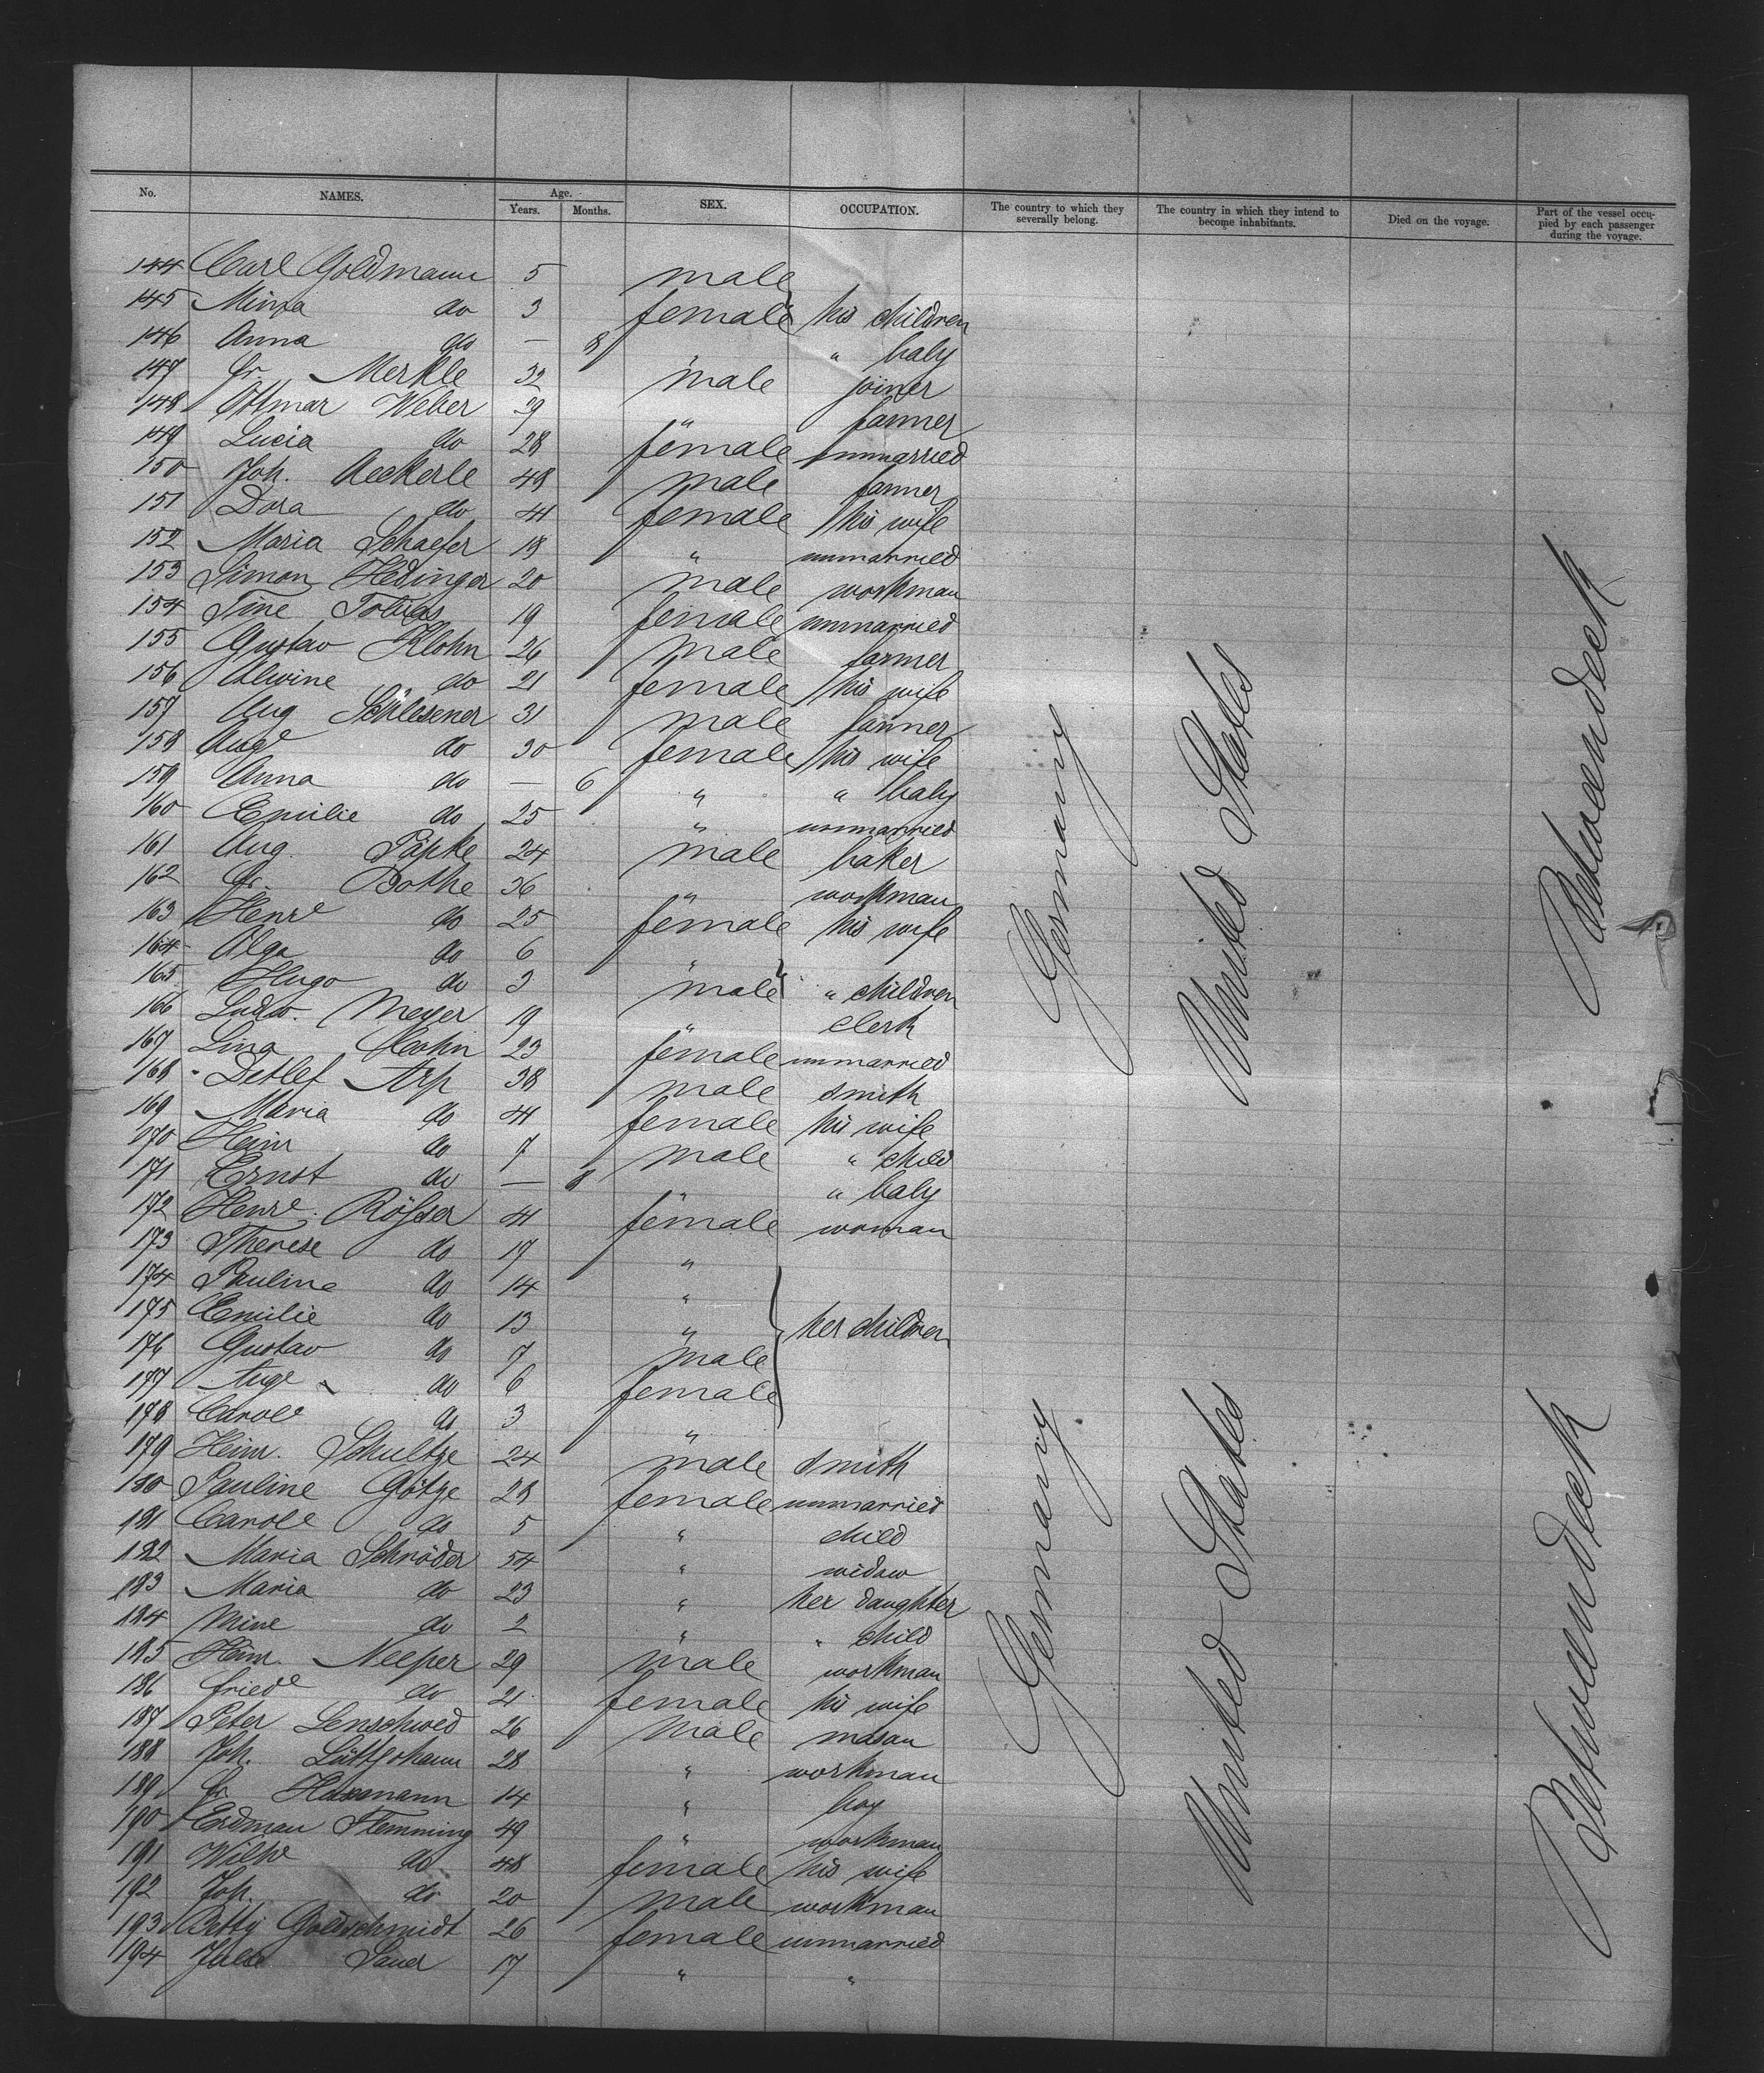 No. NAMES. Age. Years. Months. SEX. OCCUPATION. The country to which they severally belong. The country in which they intend to become inhabitants. Died on the voyage. Part of the vessel occupied by each passenger during the voyage.
144 Carl Goldmann 5 male
145 Minna do 3 female his children
146 Anna do — 8 " baby
147 Fr. Merkle 32 male joiner
148 Ottmar Weber 29 " farmer
149 Lucia do 28 female unmarried
150 Joh. Aeckerle 48 male farmer
151 Dora do 41 female his wife
152 Maria Schaefer 18 " unmarried
153 Simon Hedinger 20 male workman
154 Tine Tobias 19 female unmarried
155 Gustav Klohn 26 male farmer
156 Alwine do 21 female his wife
157 Aug Schlesener 31 male farmer
158 Auge do 30 female his wife
159 Anna do — 6 " " baby
160 Emilie do 25 " unmarried
161 Aug. Päpke 24 male baker
162 Fr. Bothe 36 " workman
163 Henre do 25 female his wife
164 Olga do 6 "
165 Hugo do 3 male " children
166 Ludw. Meyer 19 " clerk
167 Lina 23 female unmarried
168 Detlef Arp 38 male smith
169 Maria do 41 female his wife
170 Heinr do 7 male " child
171 Ernst do — 8 " " baby
172 Henre. Rösser 41 female woman
173 Therese do 17 "
174 Pauline do 14 "
175 Emilie do 13 " her children
176 Gustav do 7 male
177 Auge do 6 female
178 Carole do 3 "
179 Heinr. Schultze 24 male smith
180 Pauline Götze 28 female unmarried
181 Carole do 5 " child
182 Maria Schröder 54 " widow
183 Maria do 23 " her daughter
184 Mine do 2 " " child
185 Heinr. Neeper 29 male workman
186 Friede do 21 female his wife
187 Peter Lenschwed 26 male mason
188 Joh. Lüttjohann 28 " workman
189 Fr. 14 " boy
190 Erdman Flemming 49 " workman
191 Wilhe do 48 female his wife
192 Joh. do 20 male workman
193 Betty Goldschmidt 26 female unmarried
194 Sauer 17 " "
Germany
United States
Betweendeck
Germany
United States
Betweendeck